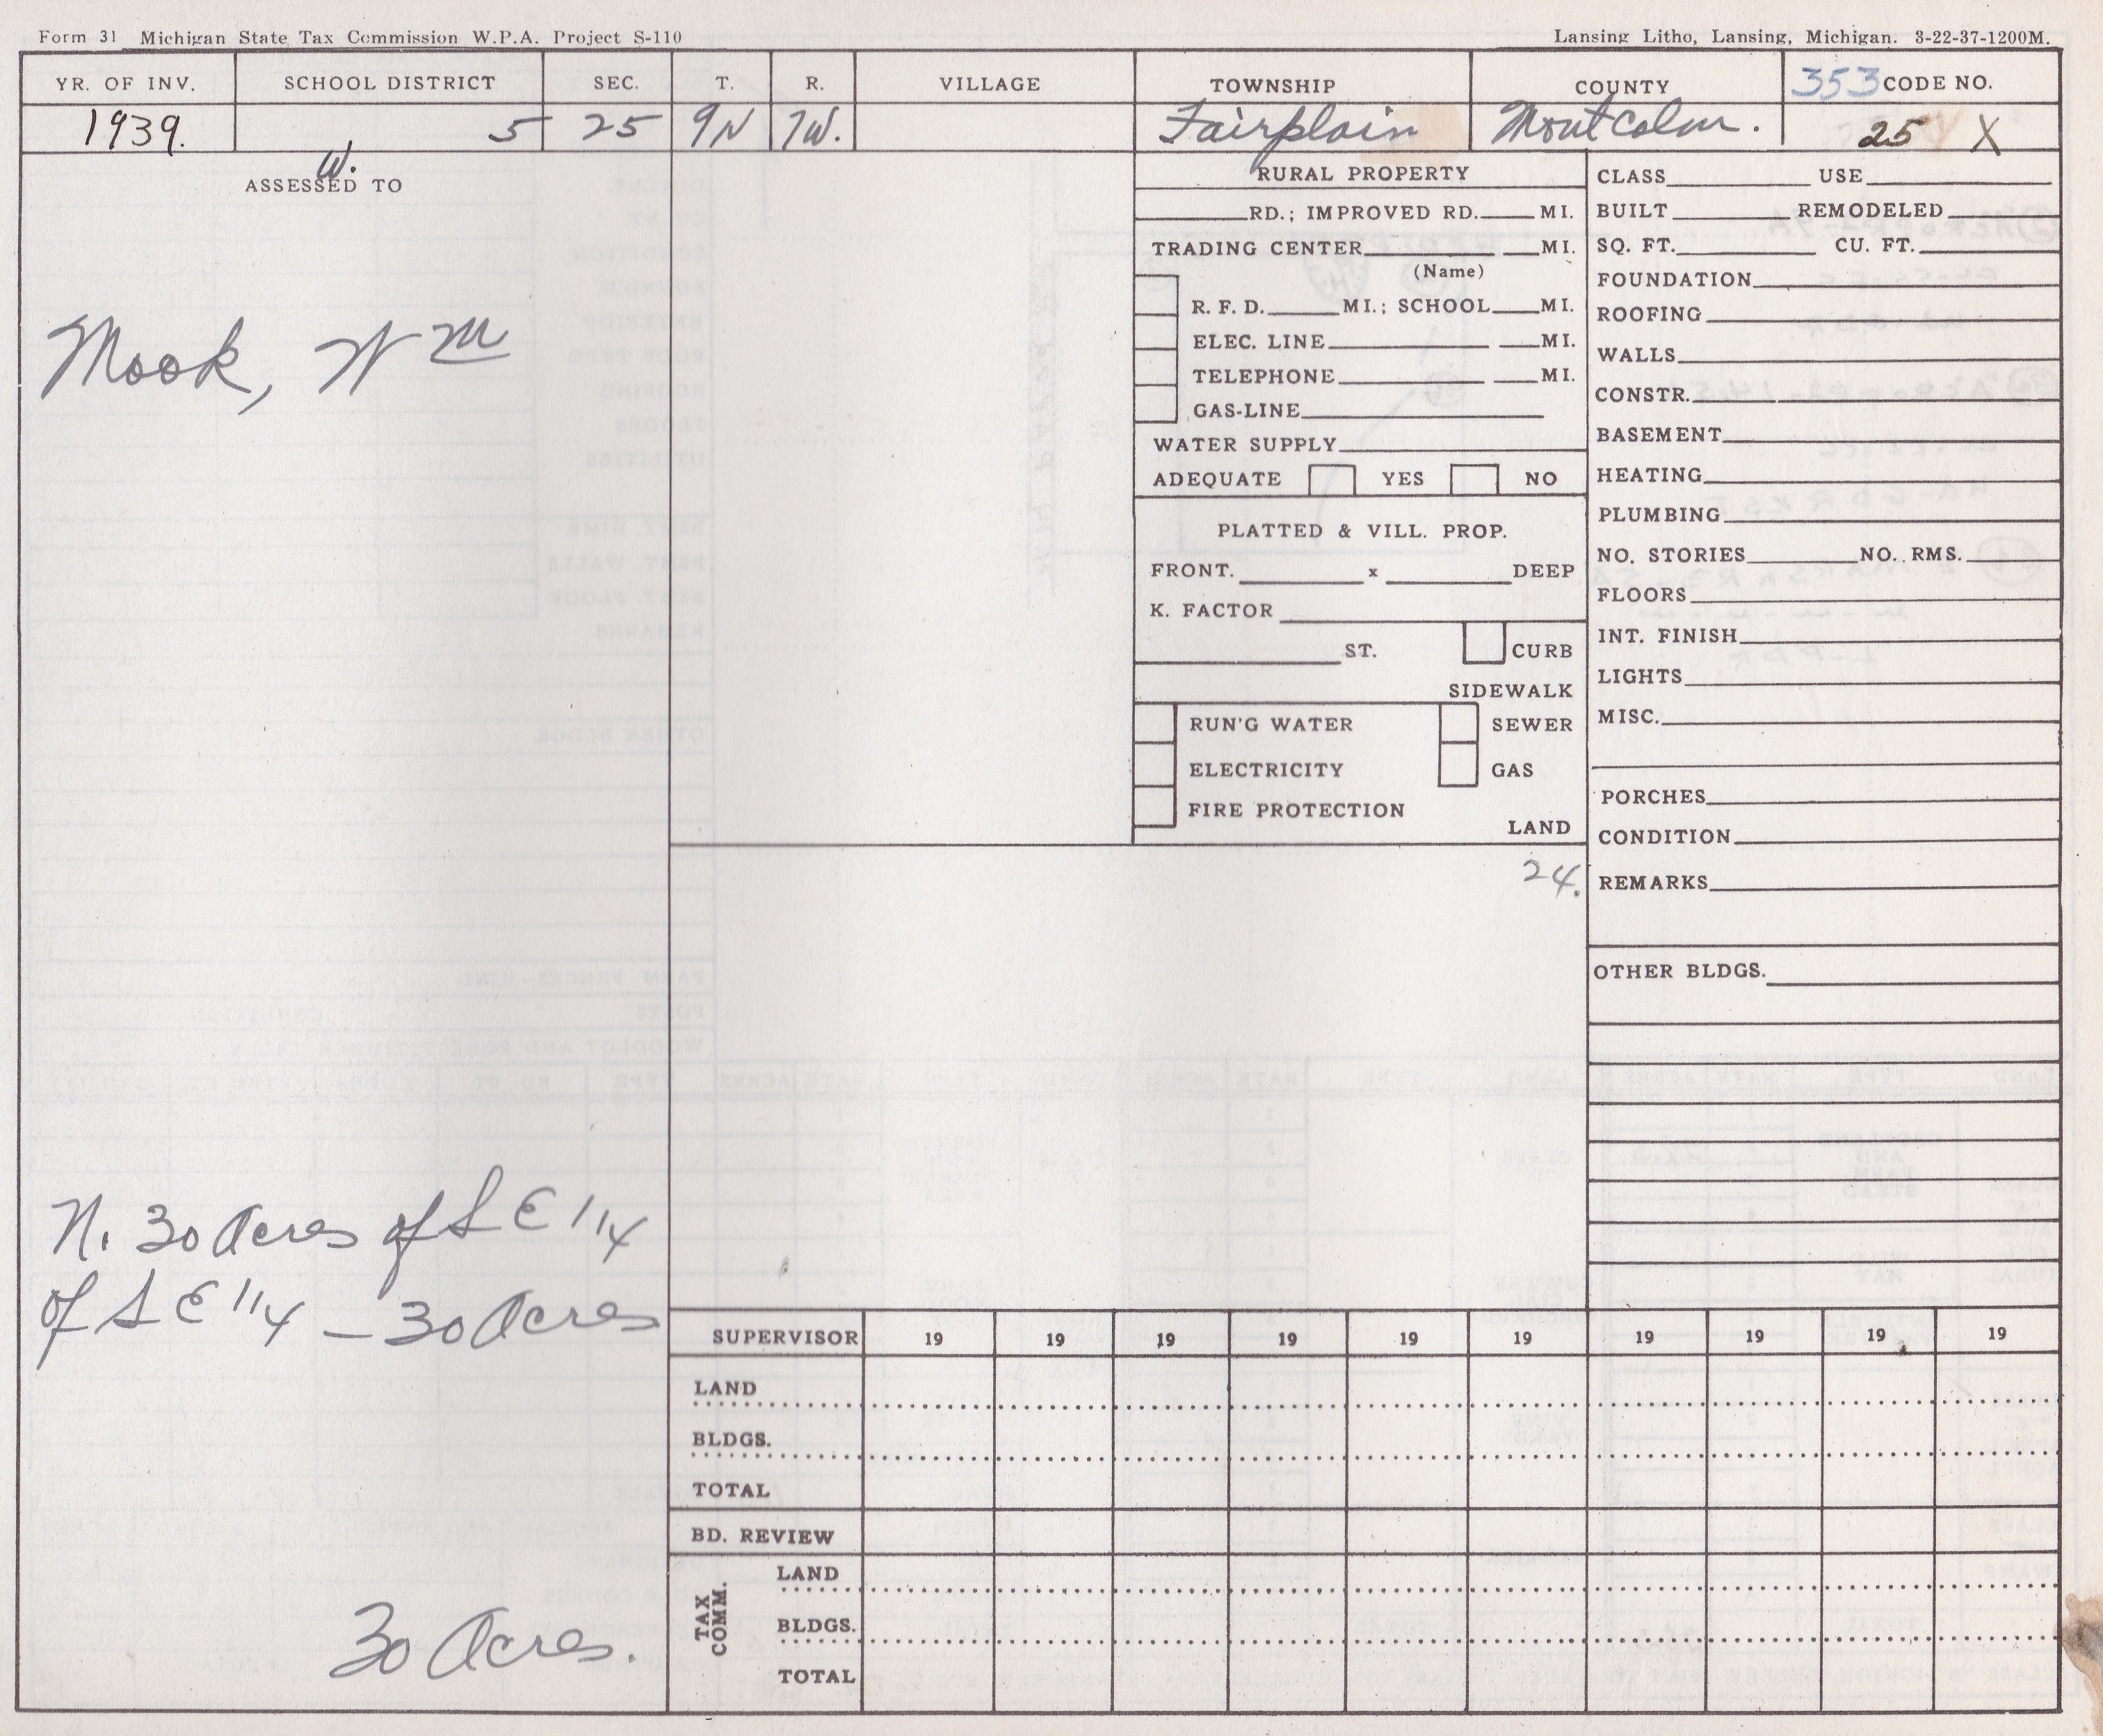 Form 31 Michigan State Tax Commission W.P.A. Project S-110
Lansing Litho, Lansing, Michigan. 3-22-37-1200M.
YR. OF INV. SCHOOL DISTRICT SEC. T. R. VILLAGE TOWNSHIP COUNTY 353 CODE NO.
1939. 5 25 9N 7W. Fairplain Montcalm. 25 X
W.
ASSESSED TO
Mook, Wm
N. 30 Acres of S E 1/4
of S E 1/4 – 30 Acres
30 Acres.
RURAL PROPERTY
RD.; IMPROVED RD. MI.
TRADING CENTER MI.
(Name)
R. F. D. MI.; SCHOOL MI.
ELEC. LINE MI.
TELEPHONE MI.
GAS-LINE
WATER SUPPLY
ADEQUATE YES NO
PLATTED & VILL. PROP.
FRONT. x DEEP
K. FACTOR
ST. CURB
SIDEWALK
RUN'G WATER SEWER
ELECTRICITY GAS
FIRE PROTECTION
LAND
24.
CLASS USE
BUILT REMODELED
SQ. FT. CU. FT.
FOUNDATION
ROOFING
WALLS
CONSTR.
BASEMENT
HEATING
PLUMBING
NO. STORIES NO. RMS.
FLOORS
INT. FINISH
LIGHTS
MISC.
PORCHES
CONDITION
REMARKS
OTHER BLDGS.
SUPERVISOR 19 19 19 19 19 19 19 19 19 19
LAND
BLDGS.
TOTAL
BD. REVIEW
TAX COMM.
LAND
BLDGS.
TOTAL